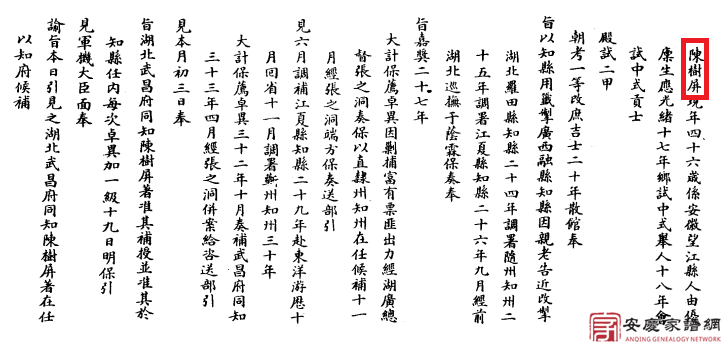 陳樹屏現年四十六歲係安徽望江縣人由優
廩生應光緒十七年鄉試中式舉人十八年會
試中式貢士
殿試二甲
朝考一等改庶吉士二十年散館奉
旨以知縣用籤掣廣西融縣知縣因親老告近改掣
湖北羅田縣知縣二十四年調署隨州知州二
十五年調署江夏縣知縣二十六年九月經前
湖北巡撫于蔭霖保奏奉
旨嘉獎二十七年
大計保薦卓異因剿捕富有票匪出力經湖廣總
督張之洞奏保以直隸州知州在任候補十一
月經張之洞端方保奏送部引
見六月調補江夏縣知縣二十九年赴東洋游歷十
月回省十一月調署蘄州知州三十年
大計保薦卓異三十二年十月奏補武昌府同知
三十三年四月經張之洞併案給咨送部引
見本月初三日奉
旨湖北武昌府同知陳樹屏著准其補授並准其於
知縣任內每次卓異加一級十九日明保引
見軍機大臣面奉
諭旨本日引見之湖北武昌府同知陳樹屏著在任
以知府候補
安慶家譜網
ANQING GENEALOGY NETWORK